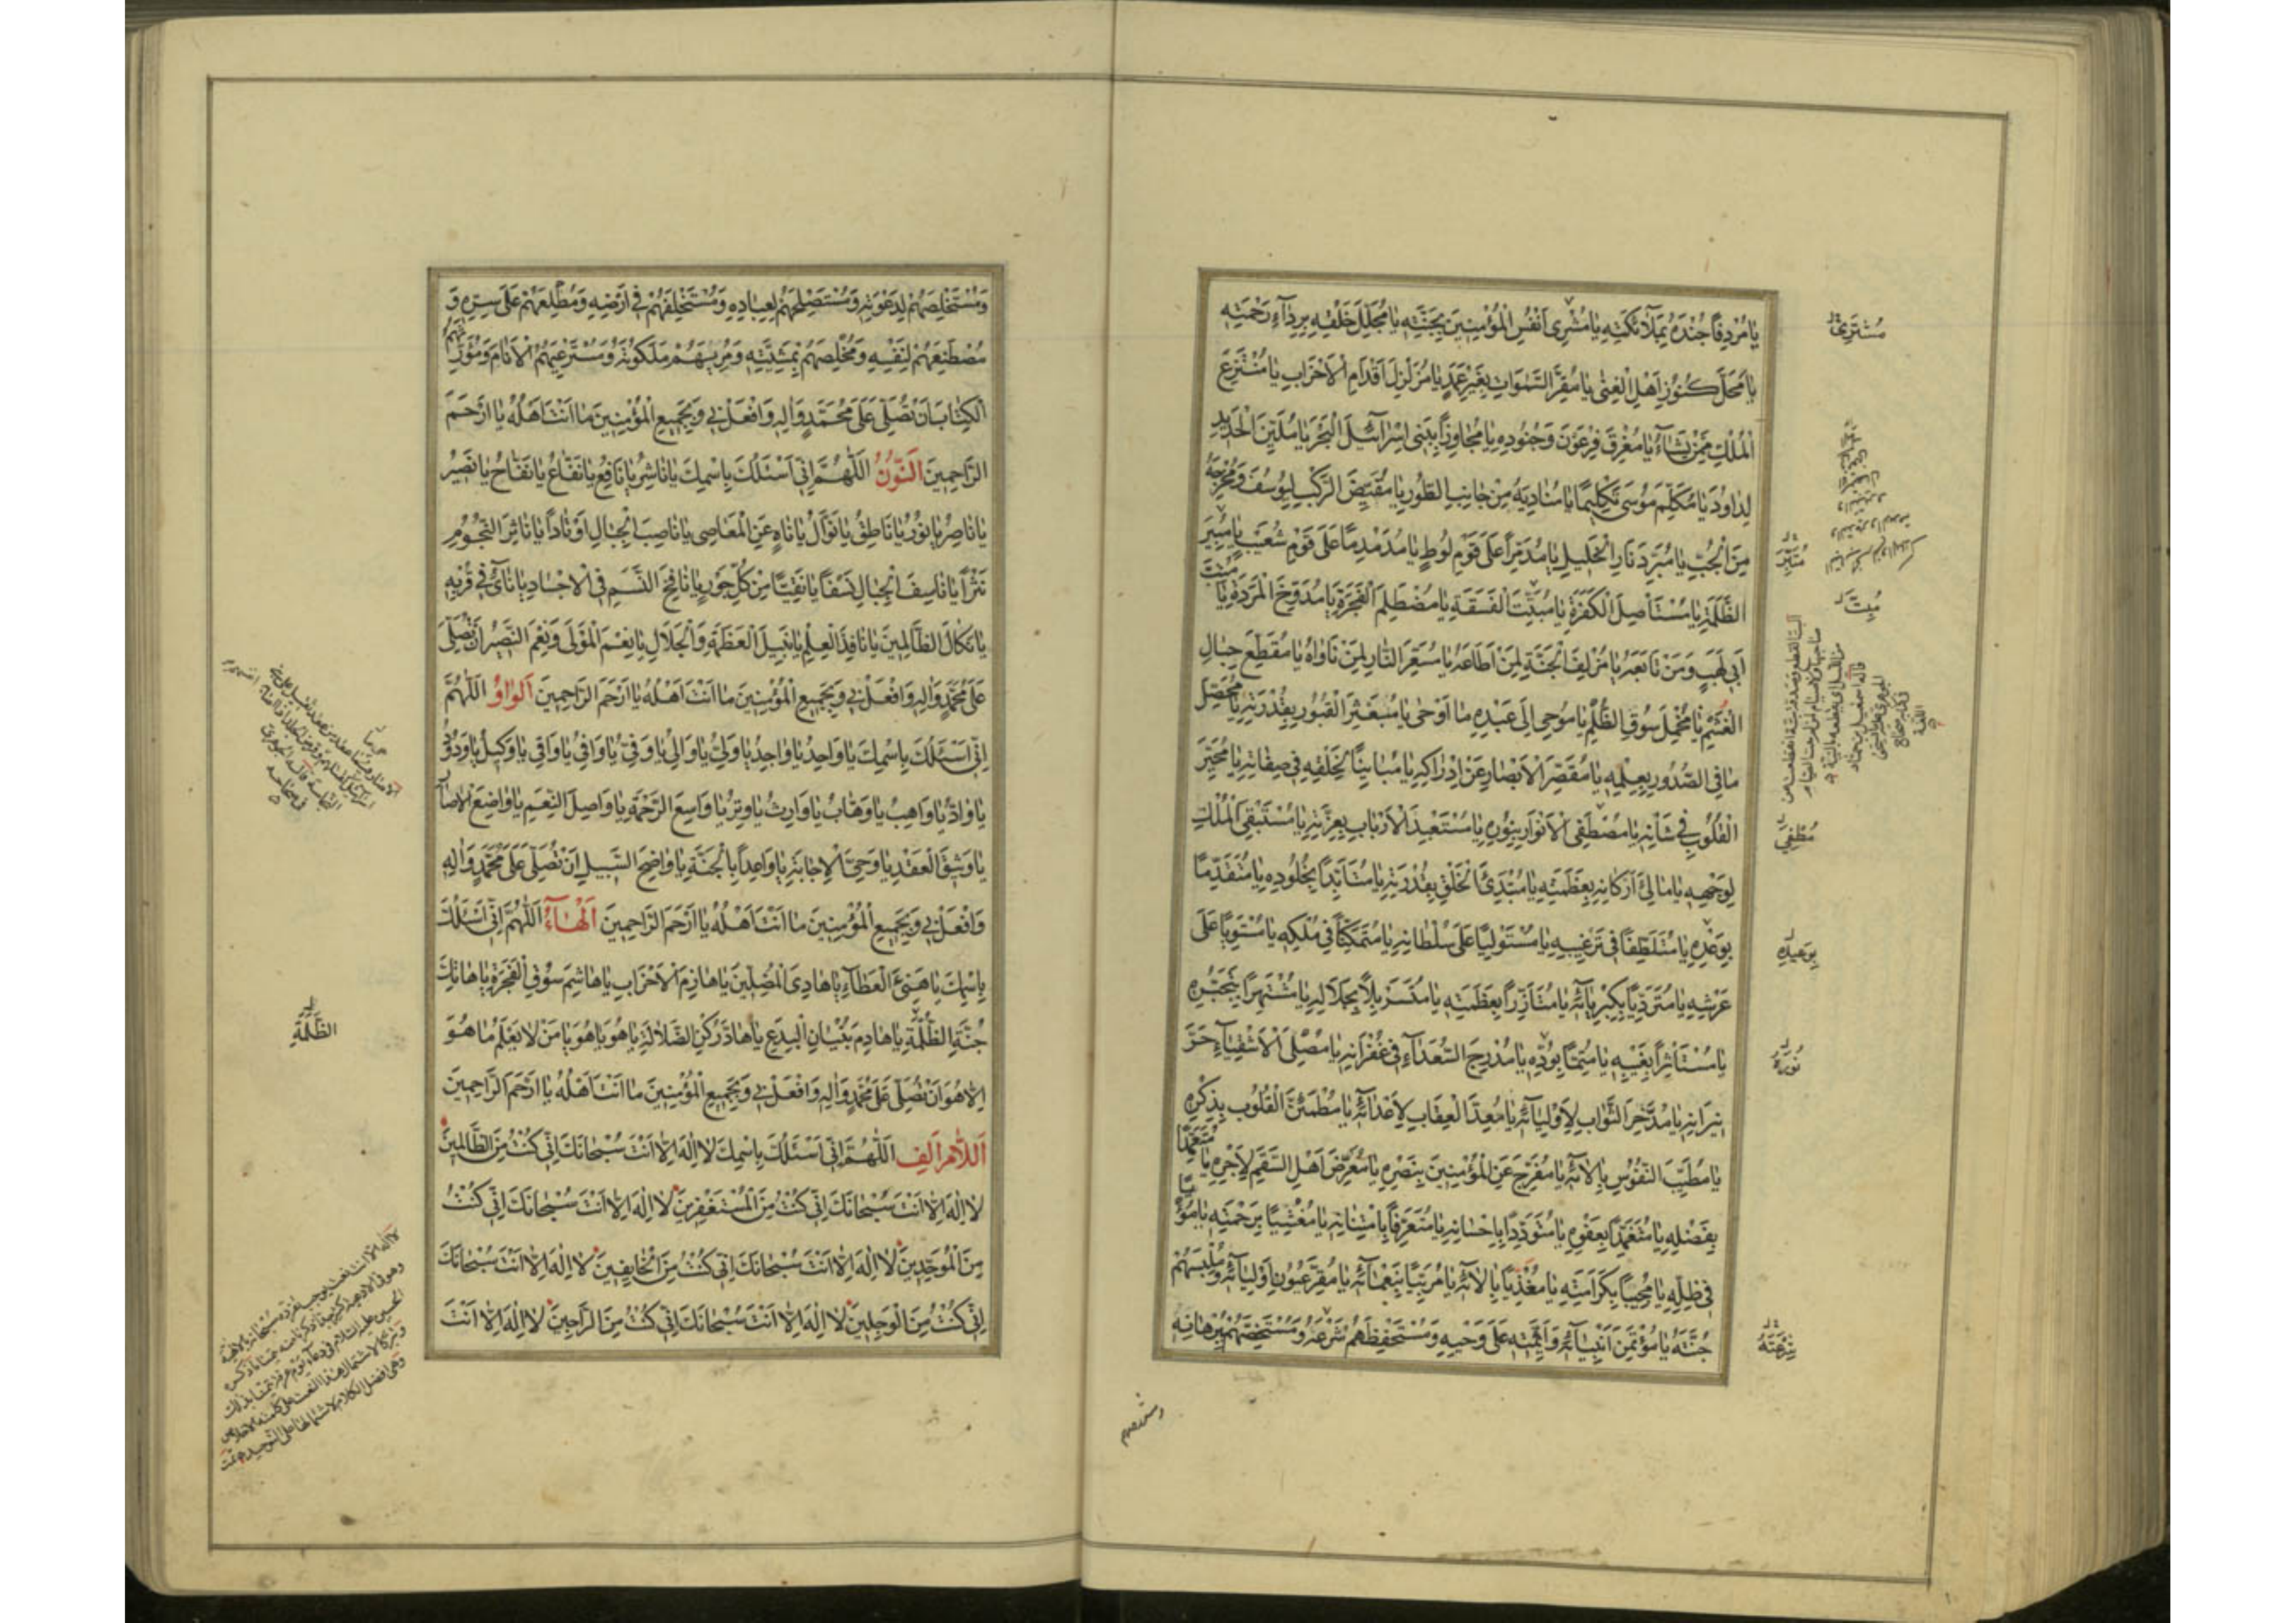 يٰا مُرْدِفاً جُنْدَهُ بِمَلٰائِكَتِهِ يٰا مُشْتَرِىَ اَنْفُسِ الْمُؤْمِنِينَ بِجَنَّتِهِ يٰا مُجَلِّلَ خَلْقِهِ بِرِدٰآءِ رَحْمَتِهِ
يٰا مَحَلَّ كُنُوزِ اَهْلِ الْغِنٰى يٰا مُقِرَّ السَّمٰوٰاتِ بِغَيْرِ عَمَدٍ يٰا مُزَلْزِلَ اَقْدٰامِ الْاَحْزٰابِ يٰا مُنْتَزِعَ
الْمُلْكِ مِمَّنْ يَشٰاءُ يٰا مُغْرِقَ فِرْعَوْنَ وَجُنُودِهِ يٰا مُجٰاوِزاً بِبَنِى اِسْرٰآئِيلَ الْبَحْرَ يٰا مُلَيِّنَ الْحَدِيدِ
لِدٰاوُدَ يٰا مُكَلِّمَ مُوسٰى تَكْلِيماً يٰا مُنٰادِيَهُ مِنْ جٰانِبِ الطُّورِ يٰا مُقَيِّضَ الرَّكْبِ لِيُوسُفَ وَمُخْرِجَهُ
مِنَ الْجُبِّ يٰا مُبَرِّدَ نٰارِ الْخَلِيلِ يٰا مُدَمِّراً عَلٰى قَوْمِ لُوطٍ يٰا مُدَمْدِماً عَلٰى قَوْمِ شُعَيْبٍ يٰا مُبِيرَ
الظَّلَمَةِ يٰا مُسْتَأْصِلَ الْكَفَرَةِ يٰا مُبَتِّتَ الْفَسَقَةِ يٰا مُصْطَلِمَ الْفَجَرَةِ يٰا مُدَوِّخَ الْمَرَدَةِ يٰا
اَبِى لَهَبٍ وَمَنْ تٰابَعَهُ يٰا مُزْلِفَ الْجَنَّةِ لِمَنْ اَطٰاعَهُ يٰا مُسَعِّرَ النّٰارِ لِمَنْ نٰاوٰاهُ يٰا مُقَطِّعَ حِبٰالِ
الْغَشْمِ يٰا مُخْمِلَ سُوقِ الظُّلْمِ يٰا مُوحِىَ اِلٰى عَبْدِهِ مٰا اَوْحٰى يٰا مُبَعْثِرَ الْقُبُورِ بِقُدْرَتِهِ يٰا مُحَصِّلَ
مٰا فِى الصُّدُورِ بِعِلْمِهِ يٰا مُقَصِّرَ الْاَبْصٰارِ عَنْ اِدْرٰاكِهِ يٰا مُبٰايِناً لِخَلْقِهِ فِى صِفٰاتِهِ يٰا مُحَيِّرَ
الْقُلُوبِ فِى شَأْنِهِ يٰا مُصْطَفِىَ الْاَنْوٰارِ بِنُورِهِ يٰا مُسْتَعْبِدَ الْاَرْبٰابِ بِعِزَّتِهِ يٰا مُسْتَبْقِىَ الْمُلْكِ
لِوَجْهِهِ يٰا مٰالِئَ اَرْكٰانِهِ بِعَظَمَتِهِ يٰا مُبْتَدِئَ الْخَلْقِ بِقُدْرَتِهِ يٰا مُتَأَبِّداً بِخُلُودِهِ يٰا مُتَقَدِّماً
بِوَعْدِهِ يٰا مُتَلَطِّفاً فِى تَرْغِيبِهِ يٰا مُسْتَوْلِياً عَلٰى سُلْطٰانِهِ يٰا مُتَمَكِّناً فِى مُلْكِهِ يٰا مُسْتَوِياً عَلٰى
عَرْشِهِ يٰا مُتَرَدِّياً بِكِبْرِيٰآئِهِ يٰا مُتَأَزِّراً بِعَظَمَتِهِ يٰا مُتَسَرْبِلاً بِجَلٰالِهِ يٰا مُشْتَهِراً بِتَجَبُّرِهِ
يٰا مُسْتَأْثِراً بِغَيْبِهِ يٰا مُتِمّاً بِوُدِّهِ يٰا مُدْرِجَ السُّعَدٰآءِ فِى غُفْرٰانِهِ يٰا مُصْلِىَ الْاَشْقِيٰآءِ حَرَّ
نِيرٰانِهِ يٰا مُدَّخِرَ الثَّوٰابِ لِاَوْلِيٰآئِهِ يٰا مُعِدَّ الْعِقٰابِ لِاَعْدٰآئِهِ يٰا مُطْمَئِنَّ الْقُلُوبِ بِذِكْرِهِ
يٰا مُطَيِّبَ النُّفُوسِ بِآلٰائِهِ يٰا مُفَرِّجَ عَنِ الْمُؤْمِنِينَ بِنَصْرِهِ يٰا مُعَرِّضَ اَهْلِ السَّقَمِ لِاَجْرِهِ يٰا
بِفَضْلِهِ يٰا مُتَغَمِّداً بِعَفْوِهِ يٰا مُتَوَدِّداً بِاِحْسٰانِهِ يٰا مُتَعَرِّفاً بِامْتِنٰانِهِ يٰا مُغَشِّياً بِرَحْمَتِهِ يٰا
فِى ظِلِّهِ يٰا مُحَيِّياً بِكَرٰامَتِهِ يٰا مُغَذِّياً بِآلٰائِهِ يٰا مُرَبِّياً بِنَعْمٰآئِهِ يٰا مُقِرَّ عُيُونِ اَوْلِيٰآئِهِ وَمُلْبِسَهُمْ
جُنَّتَهُ يٰا مُؤْتَمِنَ اَنْبِيٰآئِهِ وَاَئِمَّتِهِ عَلٰى وَحْيِهِ وَمُسْتَحْفِظَهُمْ شَرْعَهُ وَمُسْتَخِصَّهُمْ بِبُرْهٰانِهِ
مُشْتَرِىَ
مُتَبِّرَ
مُبِتَّ
مُطْفِىَ
بِوَعِيدِهِ
نُورَهُ
شِرْعَتَهُ
وَمُسْتَخْلِصَهُمْ لِدَعْوَتِهِ وَمُسْتَصْلِحَهُمْ لِعِبٰادِهِ وَمُسْتَخْلِفَهُمْ فِى اَرْضِهِ وَمُطْلِعَهُمْ عَلٰى سِرِّهِ وَ
مُصْطَنِعَهُمْ لِنَفْسِهِ وَمُخْلِصَهُمْ بِمَشِيَّتِهِ وَمُرِيَهُمْ مَلَكُوتَهُ وَمُسْتَرْعِيَهُمُ الْاَنٰامَ وَمُوَرِّثَهُمُ
الْكِتٰابَ اَنْ تُصَلِّىَ عَلٰى مُحَمَّدٍ وَآلِهِ وَافْعَلْ بِى وَبِجَمِيعِ الْمُؤْمِنِينَ مٰا اَنْتَ اَهْلُهُ يٰا اَرْحَمَ
الرّٰاحِمِينَ اَلنُّونُ اَللّٰهُمَّ اِنِّى اَسْئَلُكَ بِاسْمِكَ يٰا نٰاشِرُ يٰا نٰافِعُ يٰا نَفّٰاعُ يٰا نَفّٰاحُ يٰا نَصِيرُ
يٰا نٰاصِرُ يٰا نُورُ يٰا نٰاطِقُ يٰا نَوّٰالُ يٰا نٰاهٍ عَنِ الْمَعٰاصِى يٰا نٰاصِبَ الْجِبٰالِ اَوْتٰاداً يٰا نٰاثِرَ النُّجُومِ
نَثْراً يٰا نٰاسِفَ الْجِبٰالِ نَسْفاً يٰا نَقِيّاً مِنْ كُلِّ جَوْرٍ يٰا نٰافِخَ النَّسَمِ فِى الْاَجْسٰادِ يٰا نٰائِى فِى قُرْبِهِ
يٰا نَكٰالَ الظّٰالِمِينَ يٰا نٰافِذَ الْعِلْمِ يٰا نَبِيلَ الْعَظَمَةِ وَالْجَلٰالِ يٰا نِعْمَ الْمَوْلٰى وَنِعْمَ النَّصِيرُ اَنْ تُصَلِّىَ
عَلٰى مُحَمَّدٍ وَآلِهِ وَافْعَلْ بِى وَبِجَمِيعِ الْمُؤْمِنِينَ مٰا اَنْتَ اَهْلُهُ يٰا اَرْحَمَ الرّٰاحِمِينَ اَلْوٰاوُ اَللّٰهُمَّ
اِنِّى اَسْئَلُكَ بِاسْمِكَ يٰا وٰاحِدُ يٰا وٰاجِدُ يٰا وَلِىُّ يٰا وٰالِى يٰا وَفِىُّ يٰا وٰافِى يٰا وٰاقِى يٰا وَكِيلُ يٰا وَدُودُ
يٰا وٰادُّ يٰا وٰاهِبُ يٰا وَهّٰابُ يٰا وٰارِثُ يٰا وِتْرُ يٰا وٰاسِعَ الرَّحْمَةِ يٰا وٰاصِلَ النِّعَمِ يٰا وٰاضِعَ الْآصٰارِ
يٰا وَثِيقَ الْعَهْدِ يٰا وَحِىَّ الْاِجٰابَةِ يٰا وٰاعِداً بِالْجَنَّةِ يٰا وٰاضِحَ السَّبِيلِ اَنْ تُصَلِّىَ عَلٰى مُحَمَّدٍ وَآلِهِ
وَافْعَلْ بِى وَبِجَمِيعِ الْمُؤْمِنِينَ مٰا اَنْتَ اَهْلُهُ يٰا اَرْحَمَ الرّٰاحِمِينَ اَلْهٰآءُ اَللّٰهُمَّ اِنِّى اَسْئَلُكَ
بِاسْمِكَ يٰا هَنِىءَ الْعَطٰآءِ يٰا هٰادِىَ الْمُضِلِّينَ يٰا هٰازِمَ الْاَحْزٰابِ يٰا هٰاشِمَ سُوقِ الْفَجَرَةِ يٰا هٰاتِكَ
جُنَّةِ الظَّلَمَةِ يٰا هٰادِمَ بُنْيٰانِ الْبِدَعِ يٰا هٰادَّ رُكْنِ الضَّلٰالَةِ يٰا هُوَ يٰا هُوَ يٰا مَنْ لٰا يَعْلَمُ مٰا هُوَ
اِلّٰا هُوَ اَنْ تُصَلِّىَ عَلٰى مُحَمَّدٍ وَآلِهِ وَافْعَلْ بِى وَبِجَمِيعِ الْمُؤْمِنِينَ مٰا اَنْتَ اَهْلُهُ يٰا اَرْحَمَ الرّٰاحِمِينَ
اَللّٰامُ اَلِف اَللّٰهُمَّ اِنِّى اَسْئَلُكَ بِاسْمِكَ لٰا اِلٰهَ اِلّٰا اَنْتَ سُبْحٰانَكَ اِنِّى كُنْتُ مِنَ الظّٰالِمِينَ
لٰا اِلٰهَ اِلّٰا اَنْتَ سُبْحٰانَكَ اِنِّى كُنْتُ مِنَ الْمُسْتَغْفِرِينَ لٰا اِلٰهَ اِلّٰا اَنْتَ سُبْحٰانَكَ اِنِّى كُنْتُ
مِنَ الْمُوَحِّدِينَ لٰا اِلٰهَ اِلّٰا اَنْتَ سُبْحٰانَكَ اِنِّى كُنْتُ مِنَ الْخٰائِفِينَ لٰا اِلٰهَ اِلّٰا اَنْتَ سُبْحٰانَكَ
اِنِّى كُنْتُ مِنَ الْوَجِلِينَ لٰا اِلٰهَ اِلّٰا اَنْتَ سُبْحٰانَكَ اِنِّى كُنْتُ مِنَ الرّٰاجِينَ لٰا اِلٰهَ اِلّٰا اَنْتَ
الظُّلْمَةِ